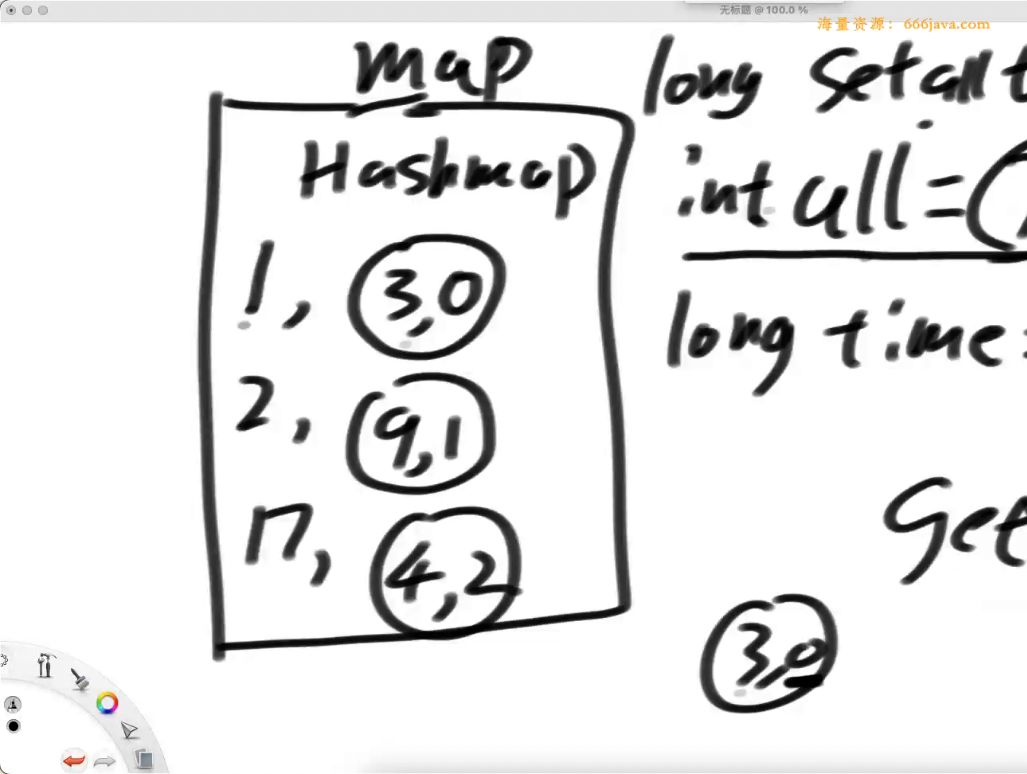 无标题 @ 100.0 %
海量资源：666java.com
map
Hashmap
1, 3,0
2, 9,1
17, 4,2
long setall
int all = (
long time
Get
3,0